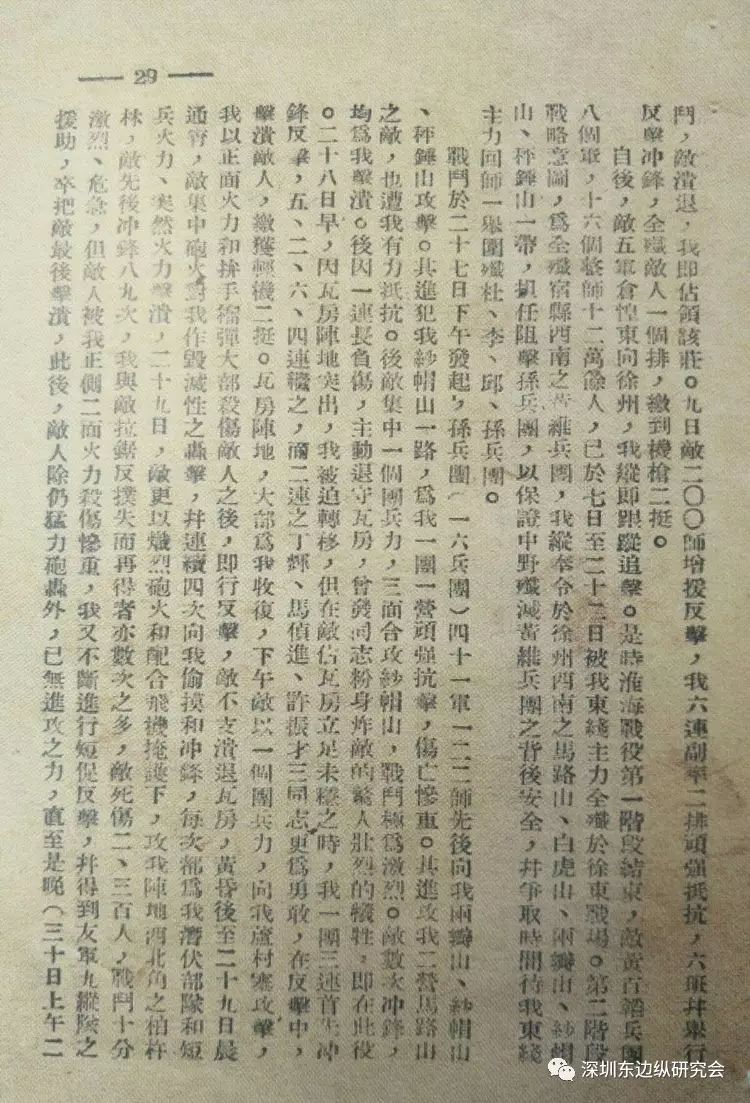 — 29 —
鬥，敵潰退，我即佔領該莊。九日敵二〇〇師增援反擊，我六連副率二排頑强抵抗，六班幷舉行
反擊冲鋒，全殲敵人一個排，繳到機槍二挺。
自後，敵五軍倉惶東向徐州，我縱即跟蹤追擊。是時淮海戰役第一階段結束，敵黃百韜兵團
八個軍，十六個整師十二萬餘人，已於七日至二十二日被我東綫主力全殲於徐東戰場。第二階段
戰略意圖，爲全殲宿縣西南之黃維兵團，我縱奉令於徐州西南之馬路山、白虎山、兩瓣山、紗帽
山、秤錘山一帶，担任阻擊孫兵團，以保證中野殲滅黃維兵團之背後安全，幷爭取時間待我東綫
主力回師一舉圍殲杜、李、邱、孫兵團。
戰鬥於二十七日下午發起，孫兵團（一六兵團）四十一軍一二二師先後向我兩瓣山、紗帽山
、秤錘山攻擊。其進犯我紗帽山一路，爲我一團一營頑强抗擊，傷亡慘重。其進攻我二營馬路山
之敵，也遭我有力抵抗。後敵集中一個團兵力，三面合攻紗帽山，戰鬥極爲激烈。敵數次冲鋒，
均爲我擊潰。後因一連長負傷，主動退守瓦房，曾發同志粉身炸敵的驚人壯烈的犧牲，即在此役
。二十八日早，因瓦房陣地突出，我被迫轉移，但在敵佔瓦房立足未穩之時，我一團三連首先冲
鋒反擊，五、二、六、四連繼之，而二連之丁輝、馬偵進、許振才三同志更爲勇敢，在反擊中，
擊潰敵人，繳獲輕機二挺。瓦房陣地，大部爲我收復，下午敵以一個團兵力，向我蘆村寨攻擊，
我以正面火力和拚手榴彈大部殺傷敵人之後，即行反擊，敵不支潰退瓦房，黃昏後至二十九日晨
通宵，敵集中砲火對我作毀滅性之轟擊，幷連續四次向我偷摸和冲鋒，每次都爲我潛伏部隊和短
兵火力、突然火力擊潰，二十九日，敵更以熾烈砲火和配合飛機掩護下，攻我陣地西北角之柏杵
林，敵先後冲鋒八九次，我與敵拉鋸反撲失而再得者亦數次之多，敵死傷二、三百人，戰鬥十分
激烈、危急，但敵人被我正側二面火力殺傷慘重，我又不斷進行短促反擊，幷得到友軍九縱隊之
援助，卒把敵最後擊潰，此後，敵人除仍猛力砲轟外，已無進攻之力，直至是晚（三十日上午二
深圳东边纵研究会